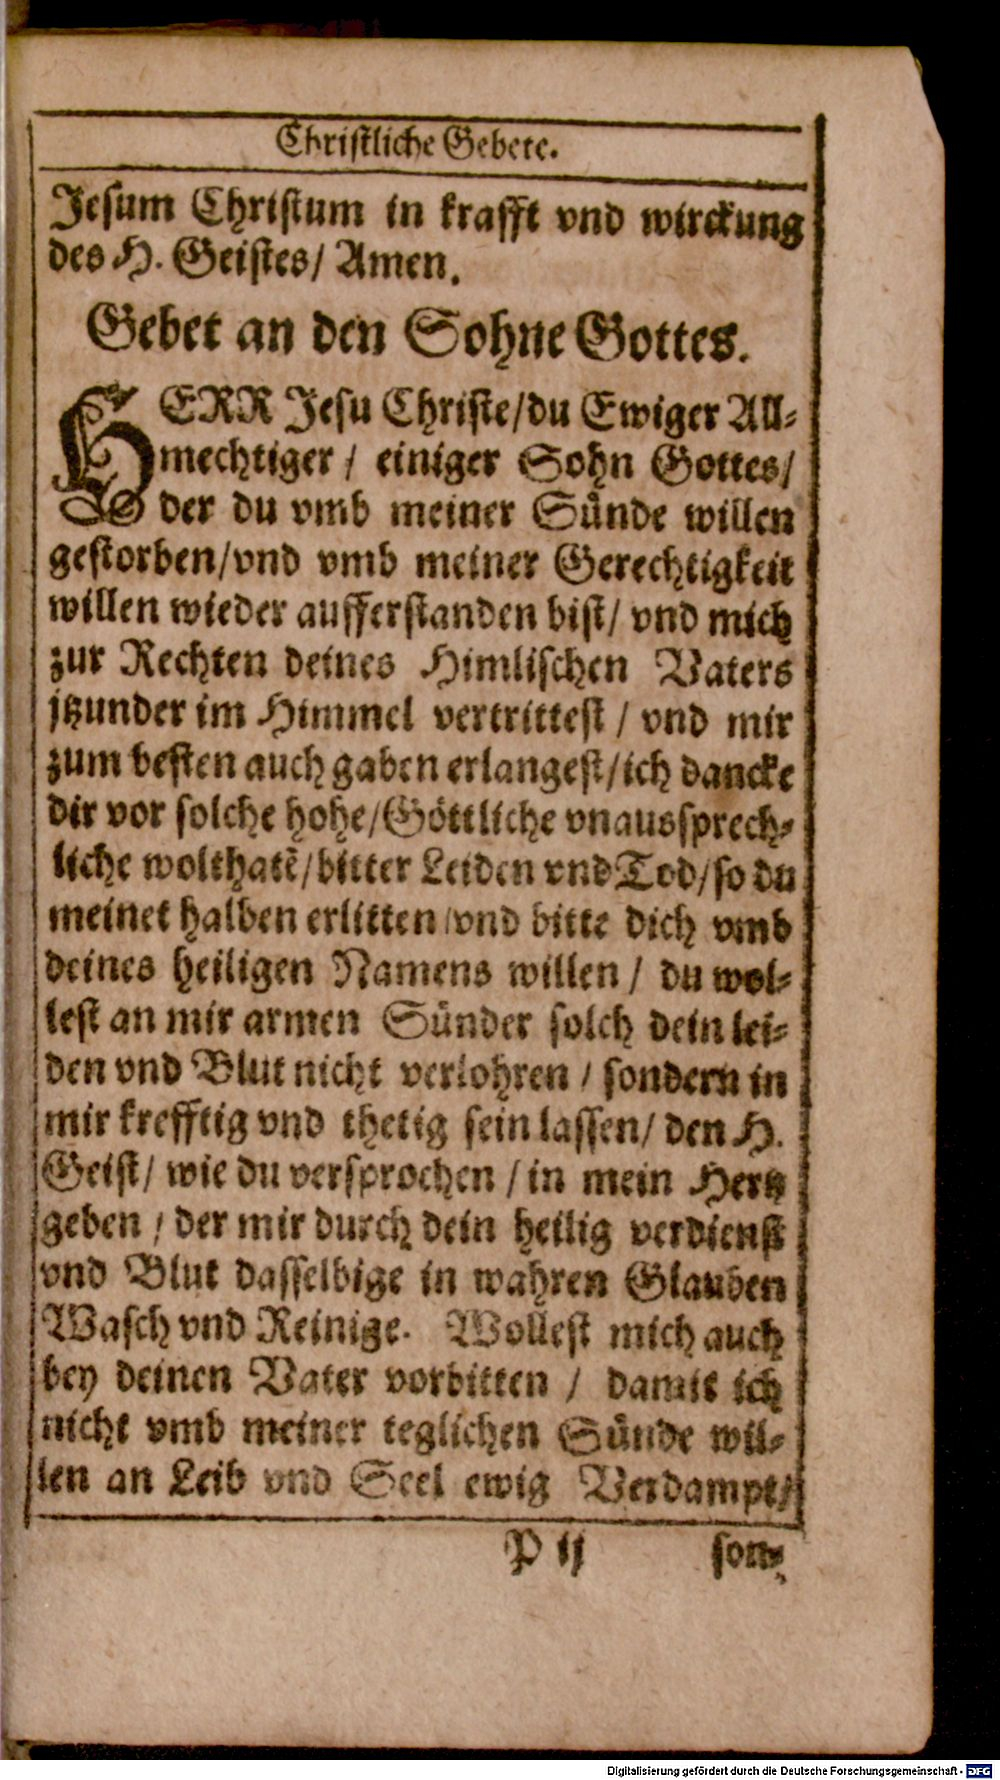 Christliche Gebete.
Jesum Christum in krafft vnd wirckung
des H. Geistes/ Amen.
Gebet an den Sohne Gottes.
HERR Jesu Christe/du Ewiger All-
mechtiger / einiger Sohn Gottes/
der du vmb meiner Sünde willen
gestorben/vnd vmb meiner Gerechtigkeit
willen wieder aufferstanden bist/ vnd mich
zur Rechten deines Himlischen Vaters
jtzunder im Himmel vertrittest / vnd mir
zum besten auch gaben erlangest/ich dancke
dir vor solche hohe/Göttliche vnaussprech-
liche wolthatẽ/bitter Leiden vnd Tod/so du
meinet halben erlitten/vnd bitte dich vmb
deines heiligen Namens willen / du wol-
lest an mir armen Sünder solch dein lei-
den vnd Blut nicht verlohren / sondern in
mir krefftig vnd thetig sein lassen/ den H.
Geist/ wie du versprochen / in mein Hertz
geben / der mir durch dein heilig verdienst
vnd Blut dasselbige in wahren Glauben
Wasch vnd Reinige. Wollest mich auch
bey deinen Vater vorbitten / damit ich
nicht vmb meiner teglichen Sünde wil-
len an Leib vnd Seel ewig Verdampt/
P ij son-
Digitalisierung gefördert durch die Deutsche Forschungsgemeinschaft - DFG